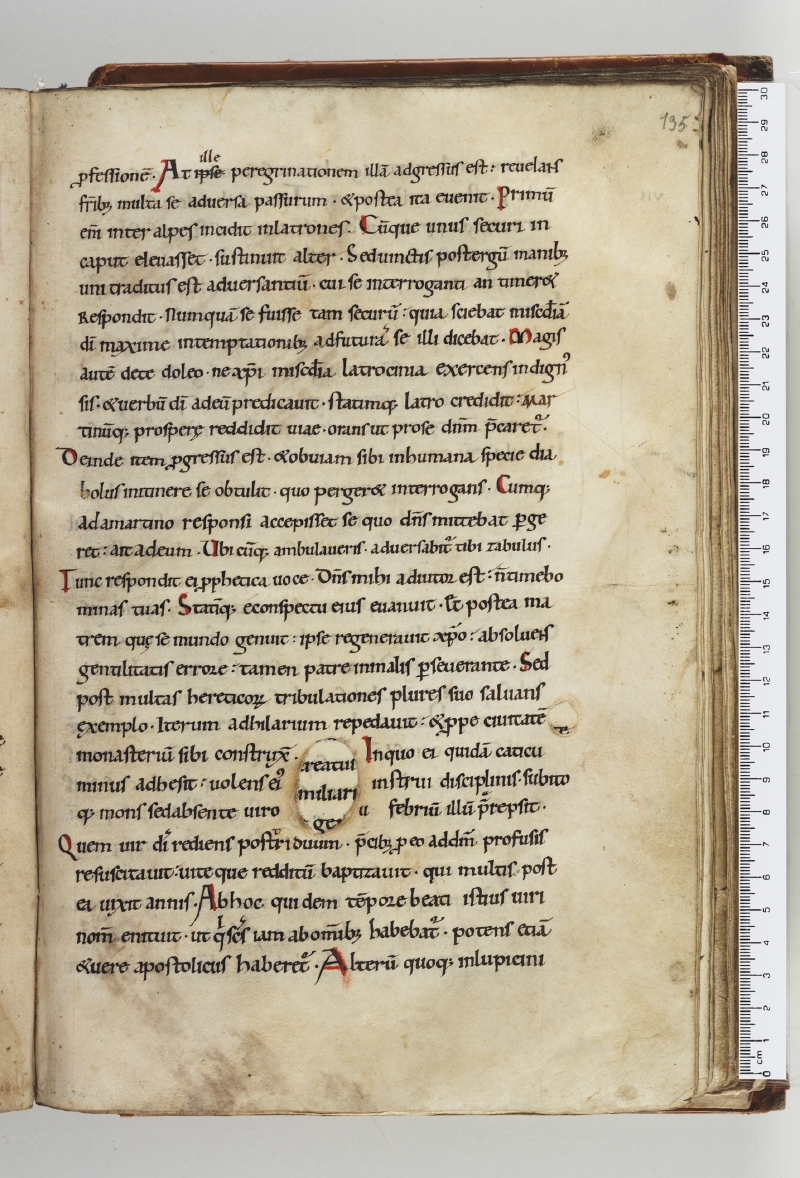 135
ille
ꝓfessionē. At ipse peregrinationem illā adgressus est: reuelans
fr̄ibꝫ multa se aduersa passurum. &postea ita euenit. Primū
em̄ inter alpes incidit inlatrones. Cūque unus securi in
caput eleuasset. sustinuit alter. Seduinctis postergū manibꝫ
uni traditus est aduersantiū. cui se interroganti an timer&
Respondit. Numquā se fuisse tam securū: quia sciebat miscd̄iā
dī maxime intemptationibꝫ adfuturā se illi dicebat. Magis
autē dete doleo. ne xp̄i miscd̄ia latrocinia exercens indignꝰ
sis. &uerbū dī adeū predicauit. statimqꝫ latro credidit: Mar
tinūqꝫ prosperę reddidit uiae. orans ut prose dn̄m p̄caret᷑.
Deinde item ꝓgressus est. &obuiam sibi inhumana specie dia
bolus initinere se obtulit. quo perger& interrogans. Cumqꝫ
admartino responsi accepisset se quo dn̄s mittebat ꝑge
ret: ait adeum. Ubi cūqꝫ ambulaueris. aduersabit᷑ tibi zabulus.
Tunc respondit ei ꝓphetica uoce. Dn̄s mihi adiutor est: n̄ timebo
minas tuas. Statīqꝫ econspectu eius euanuit. Et postea ma
trem quę se mundo genuit: ipse regenerauit xp̄o: absoluens
gentilitatis errore: tamen patre inmalis ꝑseuerante. Sed
post multas hereticoꝝ tribulationes plures suo saluans
exemplo. Iterum adhilarium repedauit: &ꝓpe ciuitatē
monasteriū sibi construxē. Inquo ei quidā caticu
minus adhesit: uolens eiꝰ instrui disciplinis. subito
qꝫ mons sedabsente uiro ui febriū illū p̄repsit.
Quem uir dī rediens postriduum. p̄cibꝫ ꝓ eo addn̄m profusis
resuscitauit: uite que redditū baptizauit. qui multis post
ea uixit annis. Abhoc quidem tēpore beati istius uiri
nom̄ enituit. ut qͥ sc̄s iam abom̄ibꝫ habebat᷑. potens etiā
&uere apostolicus haberet᷑. Alterū quoqꝫ inlupicini